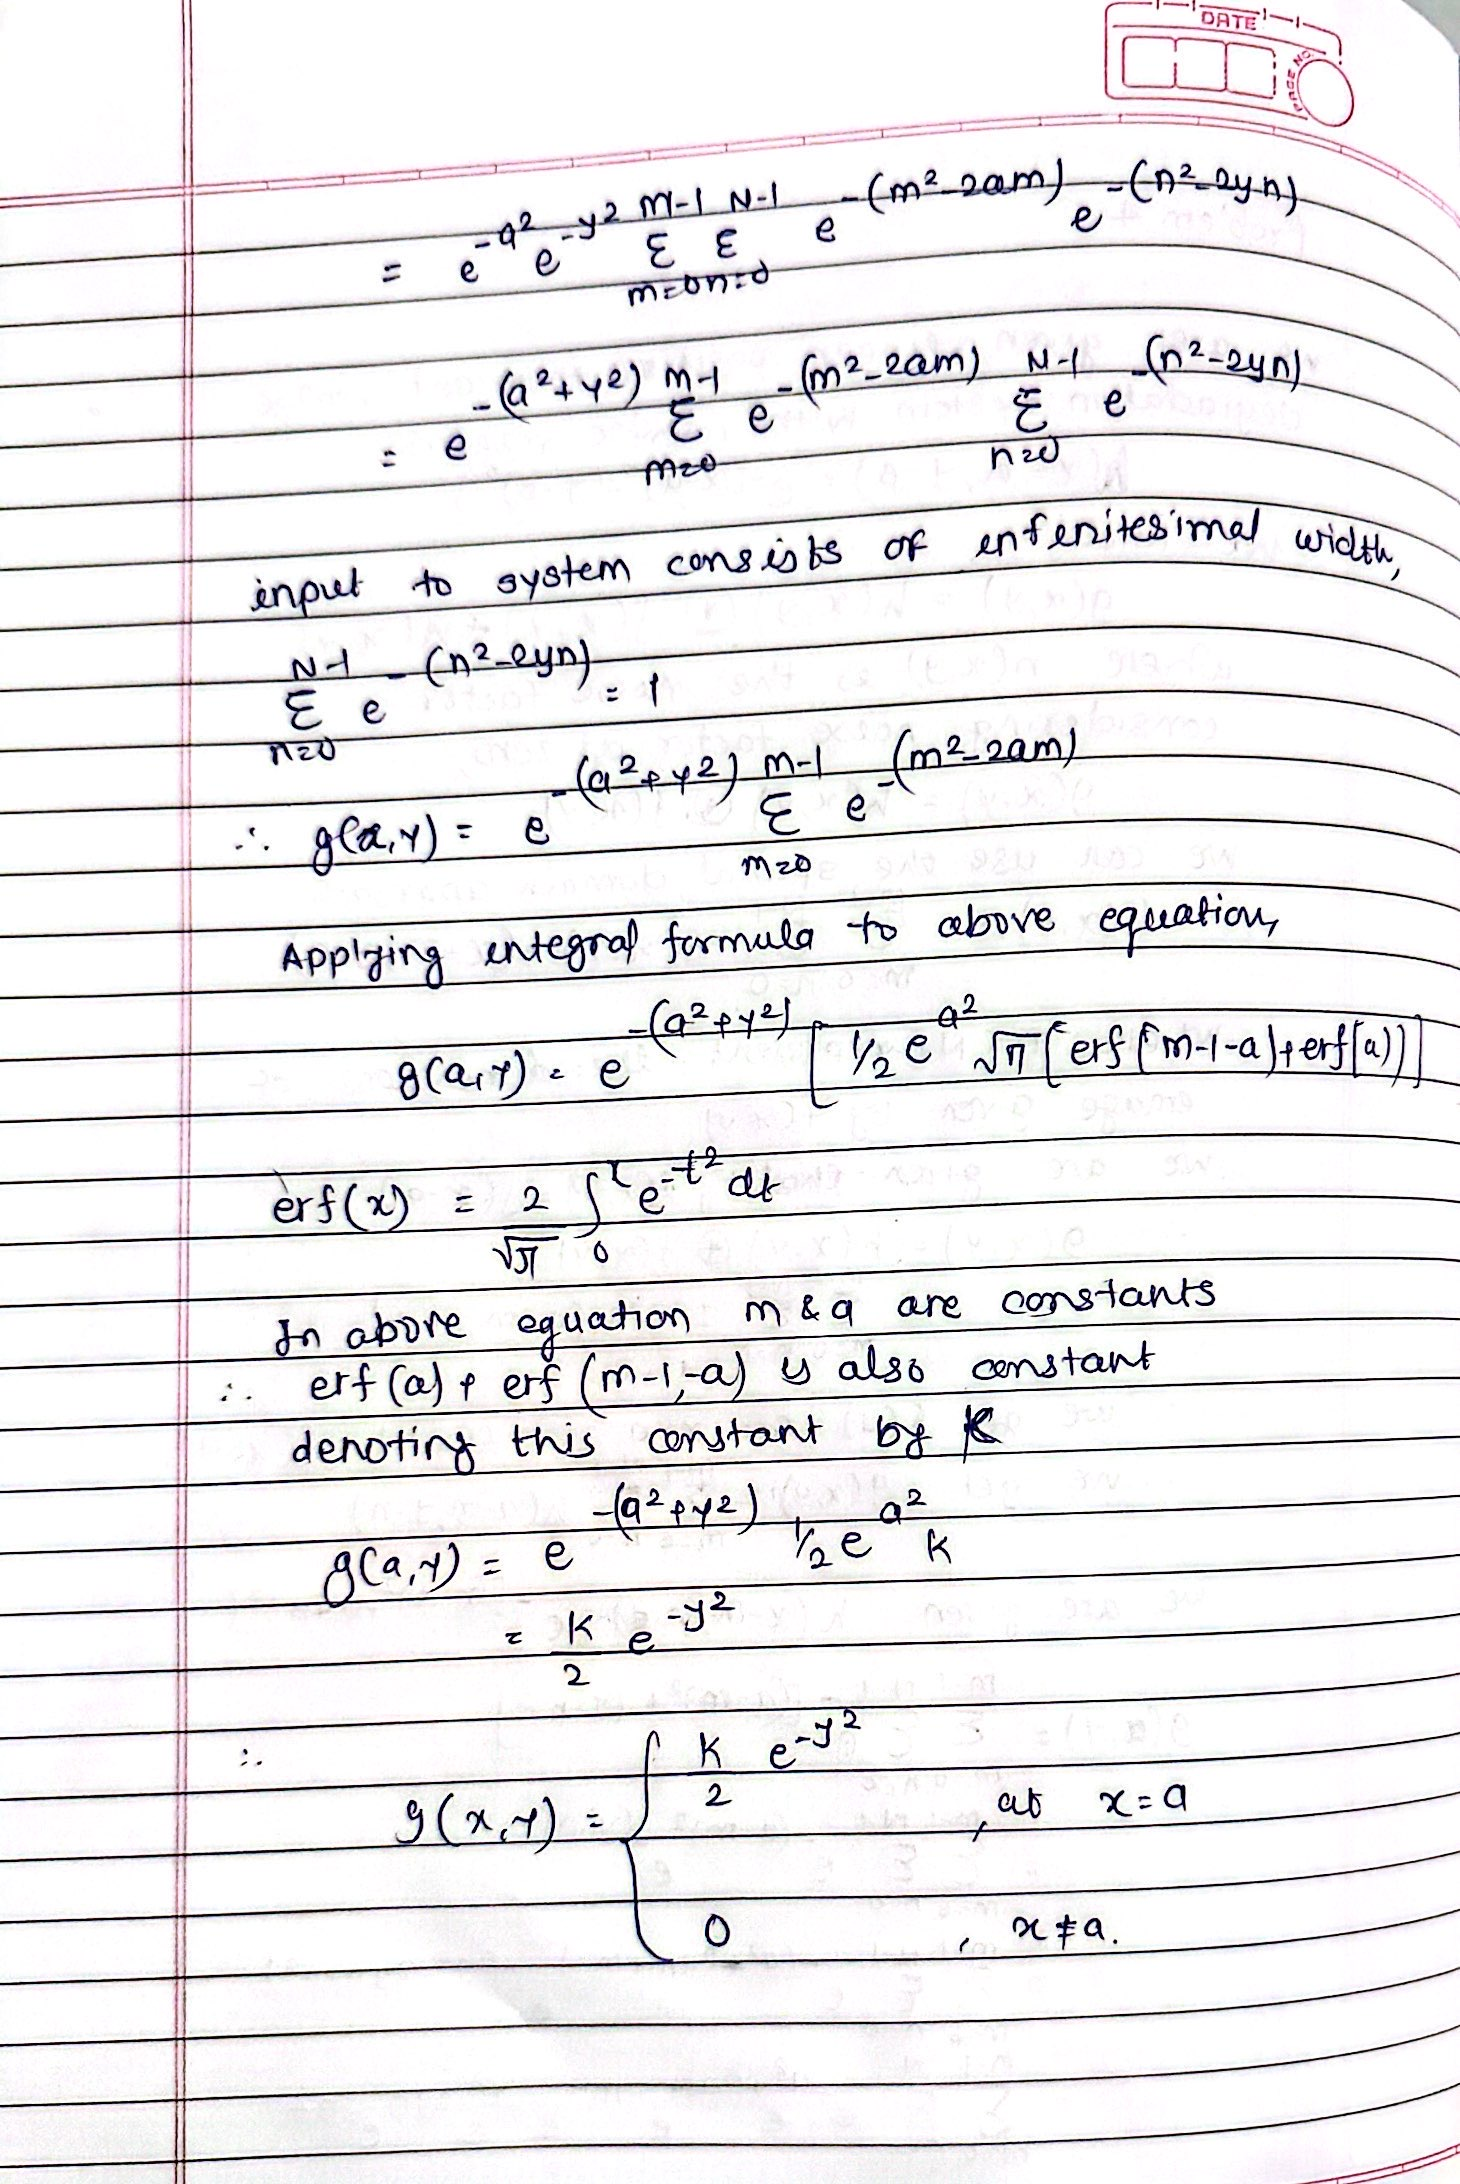 DATE
PAGE NO.
= e^{-a²} e^{-y²} Σ_{m=0}^{M-1} Σ_{n=0}^{N-1} e^{-(m²-2am)} e^{-(n²-2yn)}
= e^{-(a²+y²)} Σ_{m=0}^{M-1} e^{-(m²-2am)} Σ_{n=0}^{N-1} e^{-(n²-2yn)}
input to system consists of infinitesimal width,
Σ_{n=0}^{N-1} e^{-(n²-2yn)} = 1
∴ g(a,y) = e^{-(a²+y²)} Σ_{m=0}^{M-1} e^{-(m²-2am)}
Applying integral formula to above equation,
g(a,y) = e^{-(a²+y²)} [1/2 e^{a²} √π [erf[m-1-a]+erf[a)]]
erf(x) = 2/√π ∫_0^x e^{-t²} dt
In above equation m & a are constants
∴ erf(a) + erf(m-1,-a) is also constant
denoting this constant by K
g(a,y) = e^{-(a²+y²)} 1/2 e^{a²} K
= K/2 e^{-y²}
∴
g(x,y) = { K/2 e^{-y²} , at x=a
0 , x≠a.